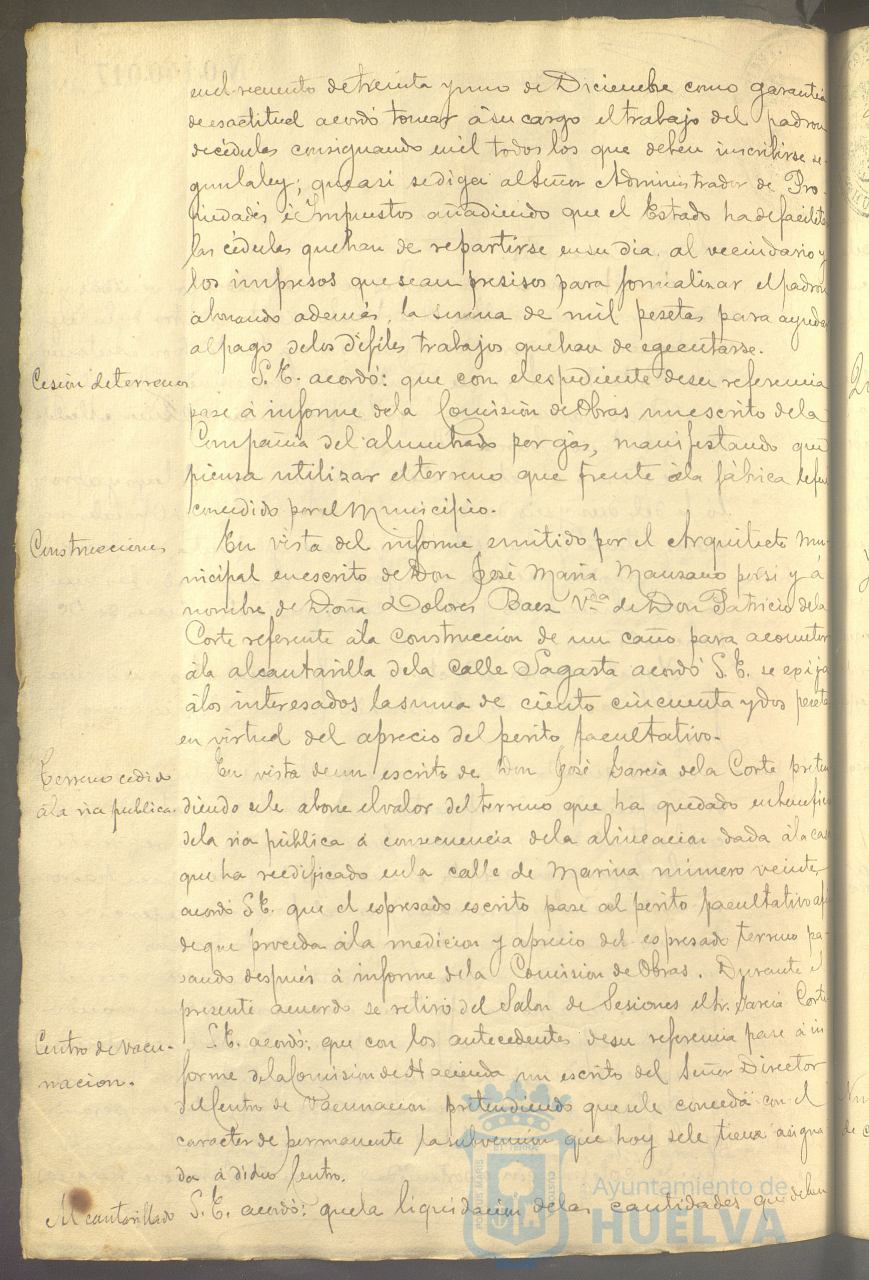 en el recuento de treinta y uno de Diciembre como garantia
de esactitud acordó tomar á su cargo el trabajo del padron
de cédulas consignando en él todos los que deben inscribirse se-
gun la ley; que asi se diga al Señor Administrador de Pro-
piedades é Impuestos añadiendo que el Estado ha de facilitar
las cédulas que han de repartirse en su dia al vecindario y
los impresos que sean presisos para formalizar el padron
abonando además, la suma de mil pesetas para ayudar
al pago de los difíles trabajos que han de egecutarse.
Cesión de terrenos
S. E. acordó: que con el espediente de su referencia
pase á informe de la Comisión de Obras un escrito de la
Compañia del alumbrado por gas, manifestando que
piensa utilizar el terreno que frente á la fábrica le fué
concedido por el Municipio.
Construcciones
En vista del informe emitido por el Arquitecto Mu-
nicipal en escrito de Don José Maria Manzano por si y á
nombre de Doña Dolores Baez Vda de Don Patricio de la
Corte referente á la construccion de un caño para acometer
á la alcantarilla de la calle Sagasta acordó S. E. se exija
á los interesados la suma de ciento cincuenta y dos pesetas
en virtud del aprecio del perito facultativo.
Terreno cedido
á la via publica.
En vista de un escrito de Don José Garcia de la Corte preten
diendo se le abone el valor del terreno que ha quedado en beneficio
de la via pública á consecuencia de la alineacion dada á la casa
que ha reedificado en la calle de Marina número veinte,
acordó S. E. que el espresado escrito pase al perito facultativo afin
de que proceda á la medicion y aprecio del espresado terreno pa-
sando después á informe de la Comision de Obras. Durante el
presente acuerdo se retiró del Salon de Sesiones el Sr. Garcia Corte
Centro de Vacu-
nacion.
S. E. acordó: que con los antecedentes de su referencia pase á in
forme de la Comision de Hacienda un escrito del Señor Director
del Centro de Vacunacion pretendiendo que se le conceda con el
caracter de permanente la subvencion que hoy se le tiene asigna
da á dicho Centro.
Alcantarillado
S. E. acordó: que la liquidacion de las cantidades que deben
PORTUS MARIS
ET TERRAE
CUSTODIA
Ayuntamiento de
HUELVA